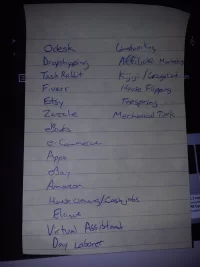 Odesk
Dropshipping
Task Rabbit
Fiverr
Etsy
Zazzle
eBooks
e-Commerce
Apps
eBay
Amazon
House cleaning/Cash jobs
Elance
Virtual Assistant
Day Laborer
Affiliate Marketing
Kijiji / Craigslist
House Flipping
Teespring
Mechanical Turk